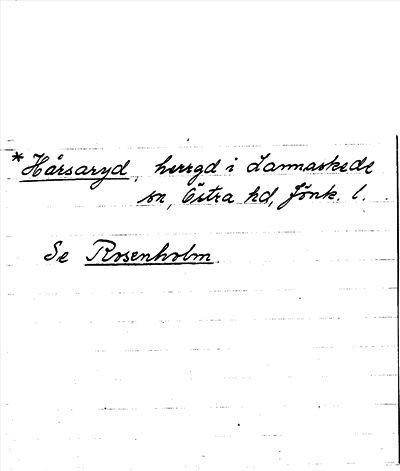 *Hårsaryd, herrgd i Lannaskede
sn, Östra hd, Jönk. l.
Se Rosenholm.